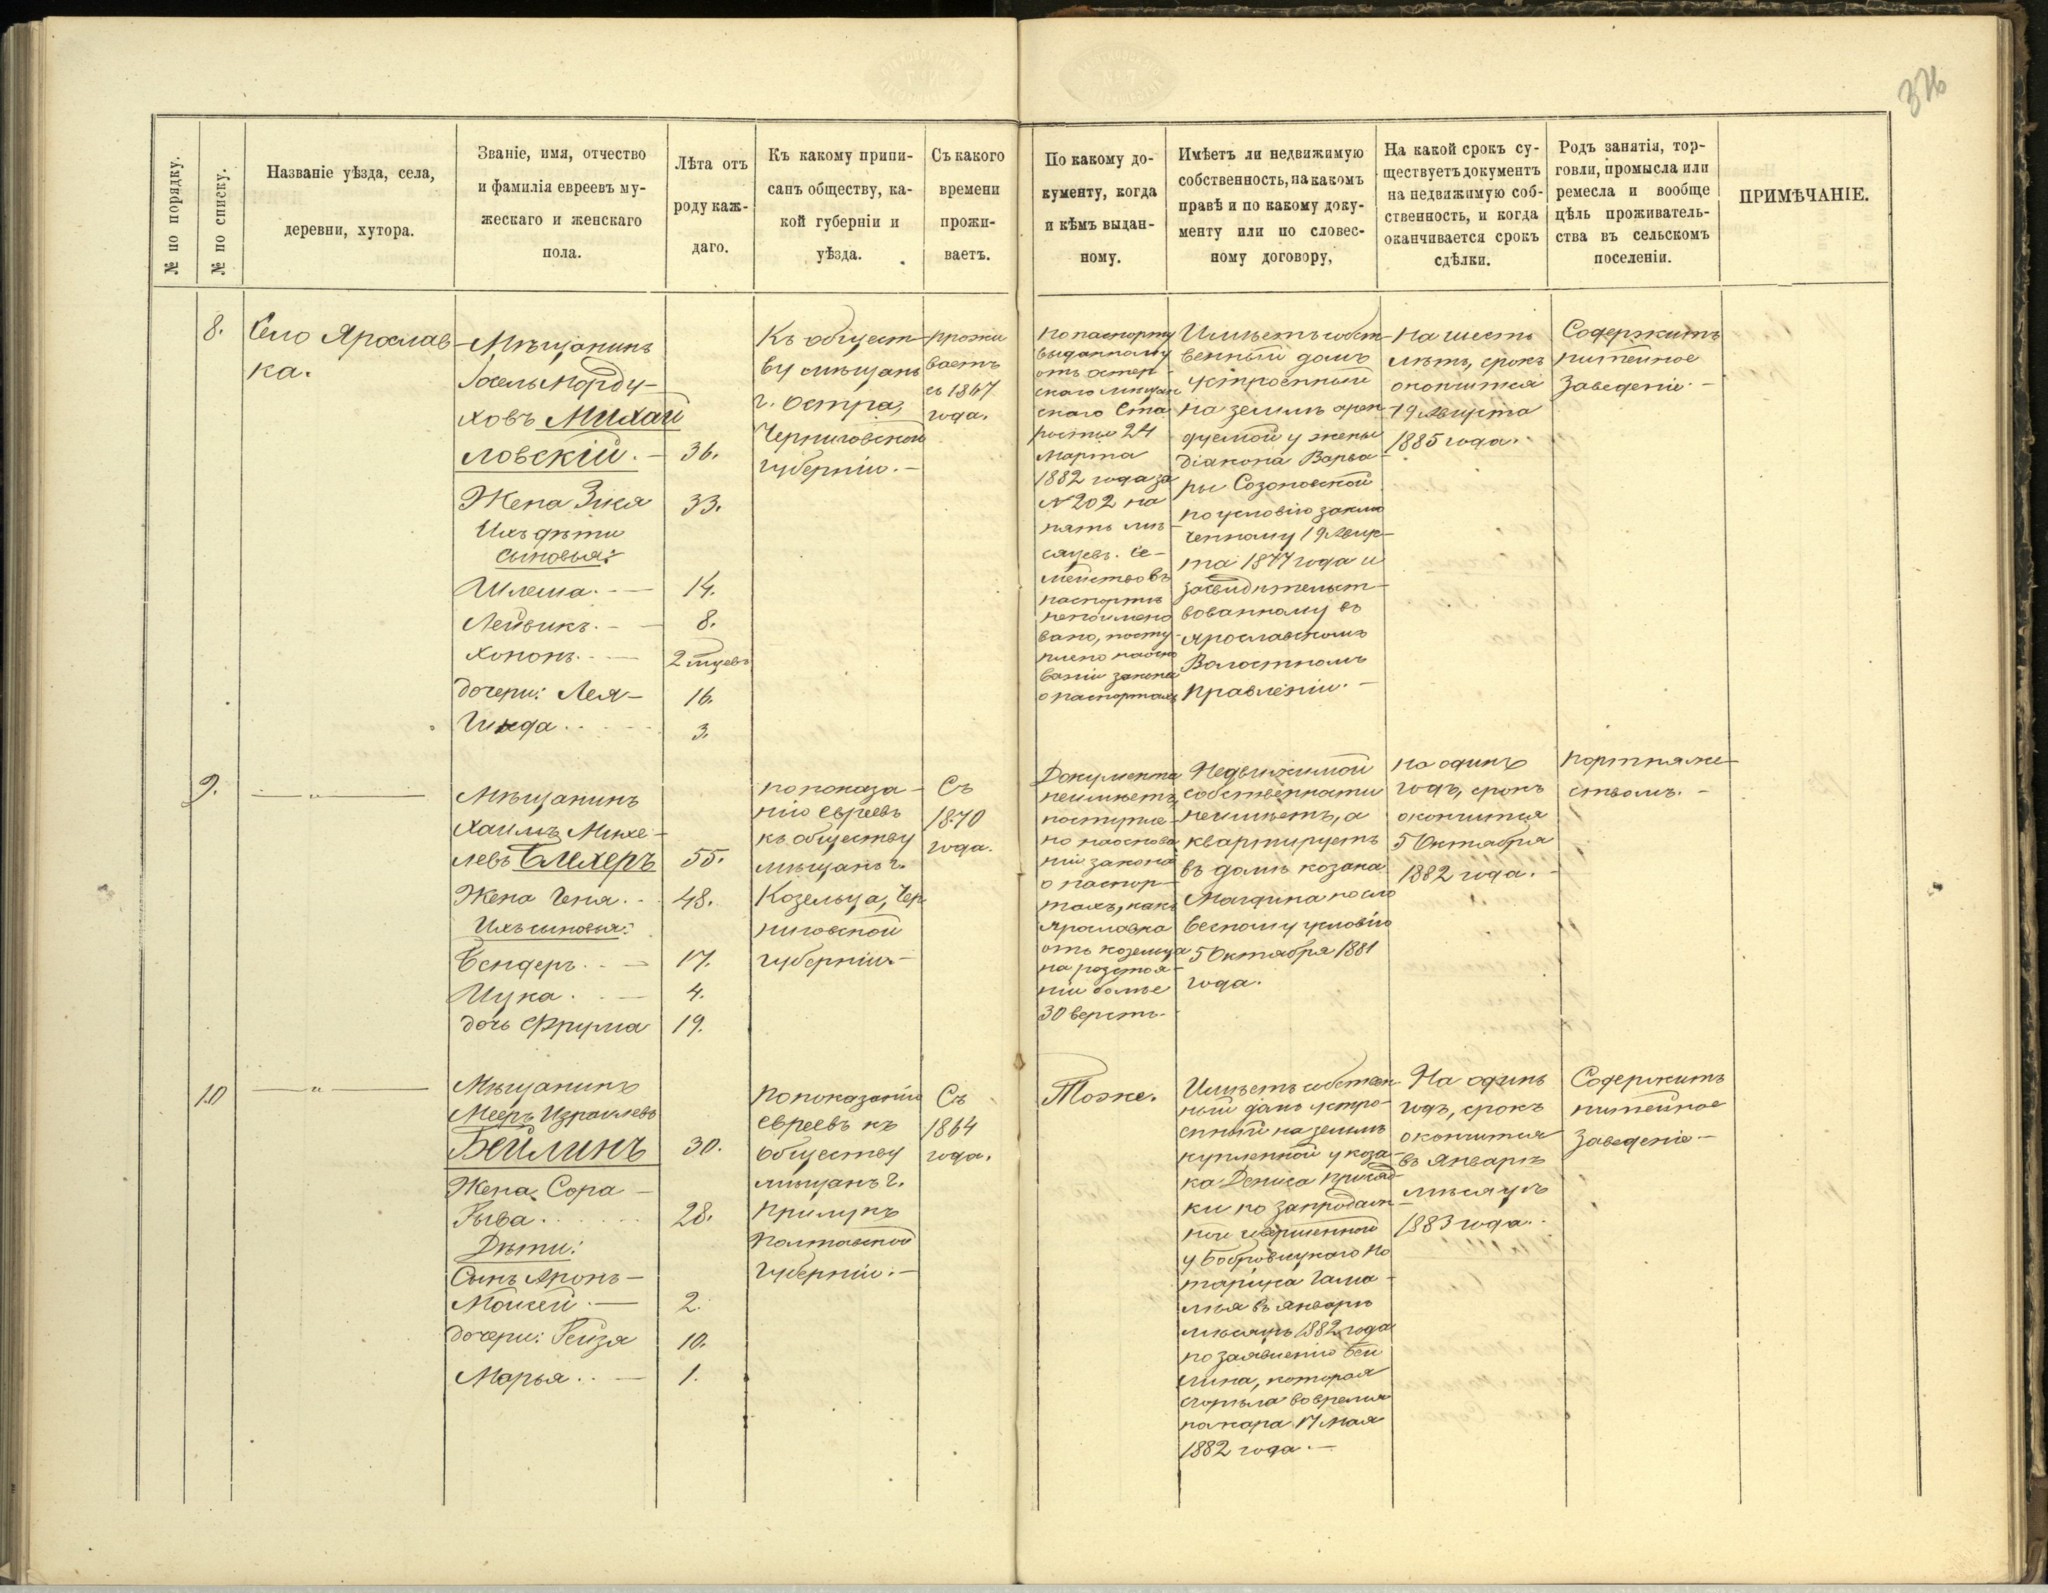 376
№ по порядку.
№ по списку.
Названіе уѣзда, села,
деревни, хутора.
Званіе, имя, отчество
и фамилія евреевъ му-
жескаго и женскаго
пола.
Лѣта отъ
роду каж-
даго.
Къ какому припи-
санъ обществу, ка-
кой губерніи и
уѣзда.
Съ какого
времени
прожи-
ваетъ.
По какому до-
кументу, когда
и кѣмъ выдан-
ному.
Имѣетъ ли недвижимую
собственность, на какомъ
правѣ и по какому доку-
менту или по словес-
ному договору,
На какой срокъ су-
ществуетъ документъ
на недвижимую соб-
ственность, и когда
оканчивается срокъ
сдѣлки.
Родъ занятія, тор-
говли, промысла или
ремесла и вообще
цѣль проживатель-
ства въ сельскомъ
поселеніи.
ПРИМѢЧАНІЕ.
8.
Село Ярослав-
ка.
Мѣщанинъ
Іосель Морду-
ховъ Михай
ловскій. —
36.
Жена Зися
33.
Ихъ дѣти
сыновья:
Шлема. —
14.
Лейвикъ. —
8.
Хононъ. —
2 мцевъ
дочери: Лея —
16.
Гинда
3.
Къ общест-
ву мѣщанъ
г. Остра,
Черниговской
губерніи. —
прожи
ваетъ
съ 1867
года.
по паспорту
выданному
отъ Остер-
скаго мѣщан
скаго Ста
росты 24
Марта
1882 года за
№ 202 на
пять мѣ-
сяцевъ. Се-
мейство въ
паспортѣ
непоимено
вано, посту-
плено на осно
ваніи закона
о паспортахъ
Имѣетъ собст-
венный домъ
устроенный
на землѣ арен-
дуемой у жены
діакона Варва-
ры Созоновской
по условію заклю
ченному 19 Авгус-
та 1877 года и
засвидѣтельст-
вованному въ
Ярославскомъ
Волостномъ
Правленіи. —
На шесть
лѣтъ, срокъ
окончится
19 Августа
1885 года.
Содержитъ
питейное
Заведеніе. —
9.
— „ —
Мѣщанинъ
Хаимъ Михе-
левъ Блехеръ
55.
Жена Геня
48.
Ихъ сыновья:
Бендеръ. —
17.
Цука. —
4.
дочь Фрума
19.
по показа-
нію евреевъ
къ обществу
мѣщанъ г.
Козельца, Чер
ниговской
губерніи —
Съ
1870
года.
Документа
неимѣетъ,
поступле-
но на основа
ніи закона
о паспор-
тахъ, какъ
Ярославка
отъ Козельца
на разстоя-
ніи болѣе
30 верстъ.
Недвижимой
собственности
неимѣетъ, а
квартируетъ
въ домѣ козака
по сло
весному условію
5 Октября 1881
года.
На одинъ
годъ, срокъ
окончится
5 Октября
1882 года. —
портняже-
ствомъ. —
10
— „ —
Мѣщанинъ
Мееръ Израилевъ
Бейлинъ
30.
Жена Сора —
Рыва
28.
Дѣти:
Сынъ Аронъ —
Мойсей. —
2.
дочери: Рейзя
10.
Марья. —
1.
По показанію
евреевъ къ
обществу
мѣщанъ г.
Прилукъ
Полтавской
губерніи. —
Съ
1864
года.
Тоже.
Имѣетъ собствен
ный домъ устро-
енный на землѣ
купленной у коза-
ка Дениса
ки по запродаж-
ной совершенной
у Бобровицкаго но
таріуса Гама-
лѣя въ Январѣ
мѣсяцѣ 1882 года
по заявленію Бей
лина, которая
сгорѣла во время
пожара 17 Мая
1882 года. —
На одинъ
годъ, срокъ
окончится
въ Январѣ
мѣсяцѣ
1883 года.
Содержитъ
питейное
Заведеніе —